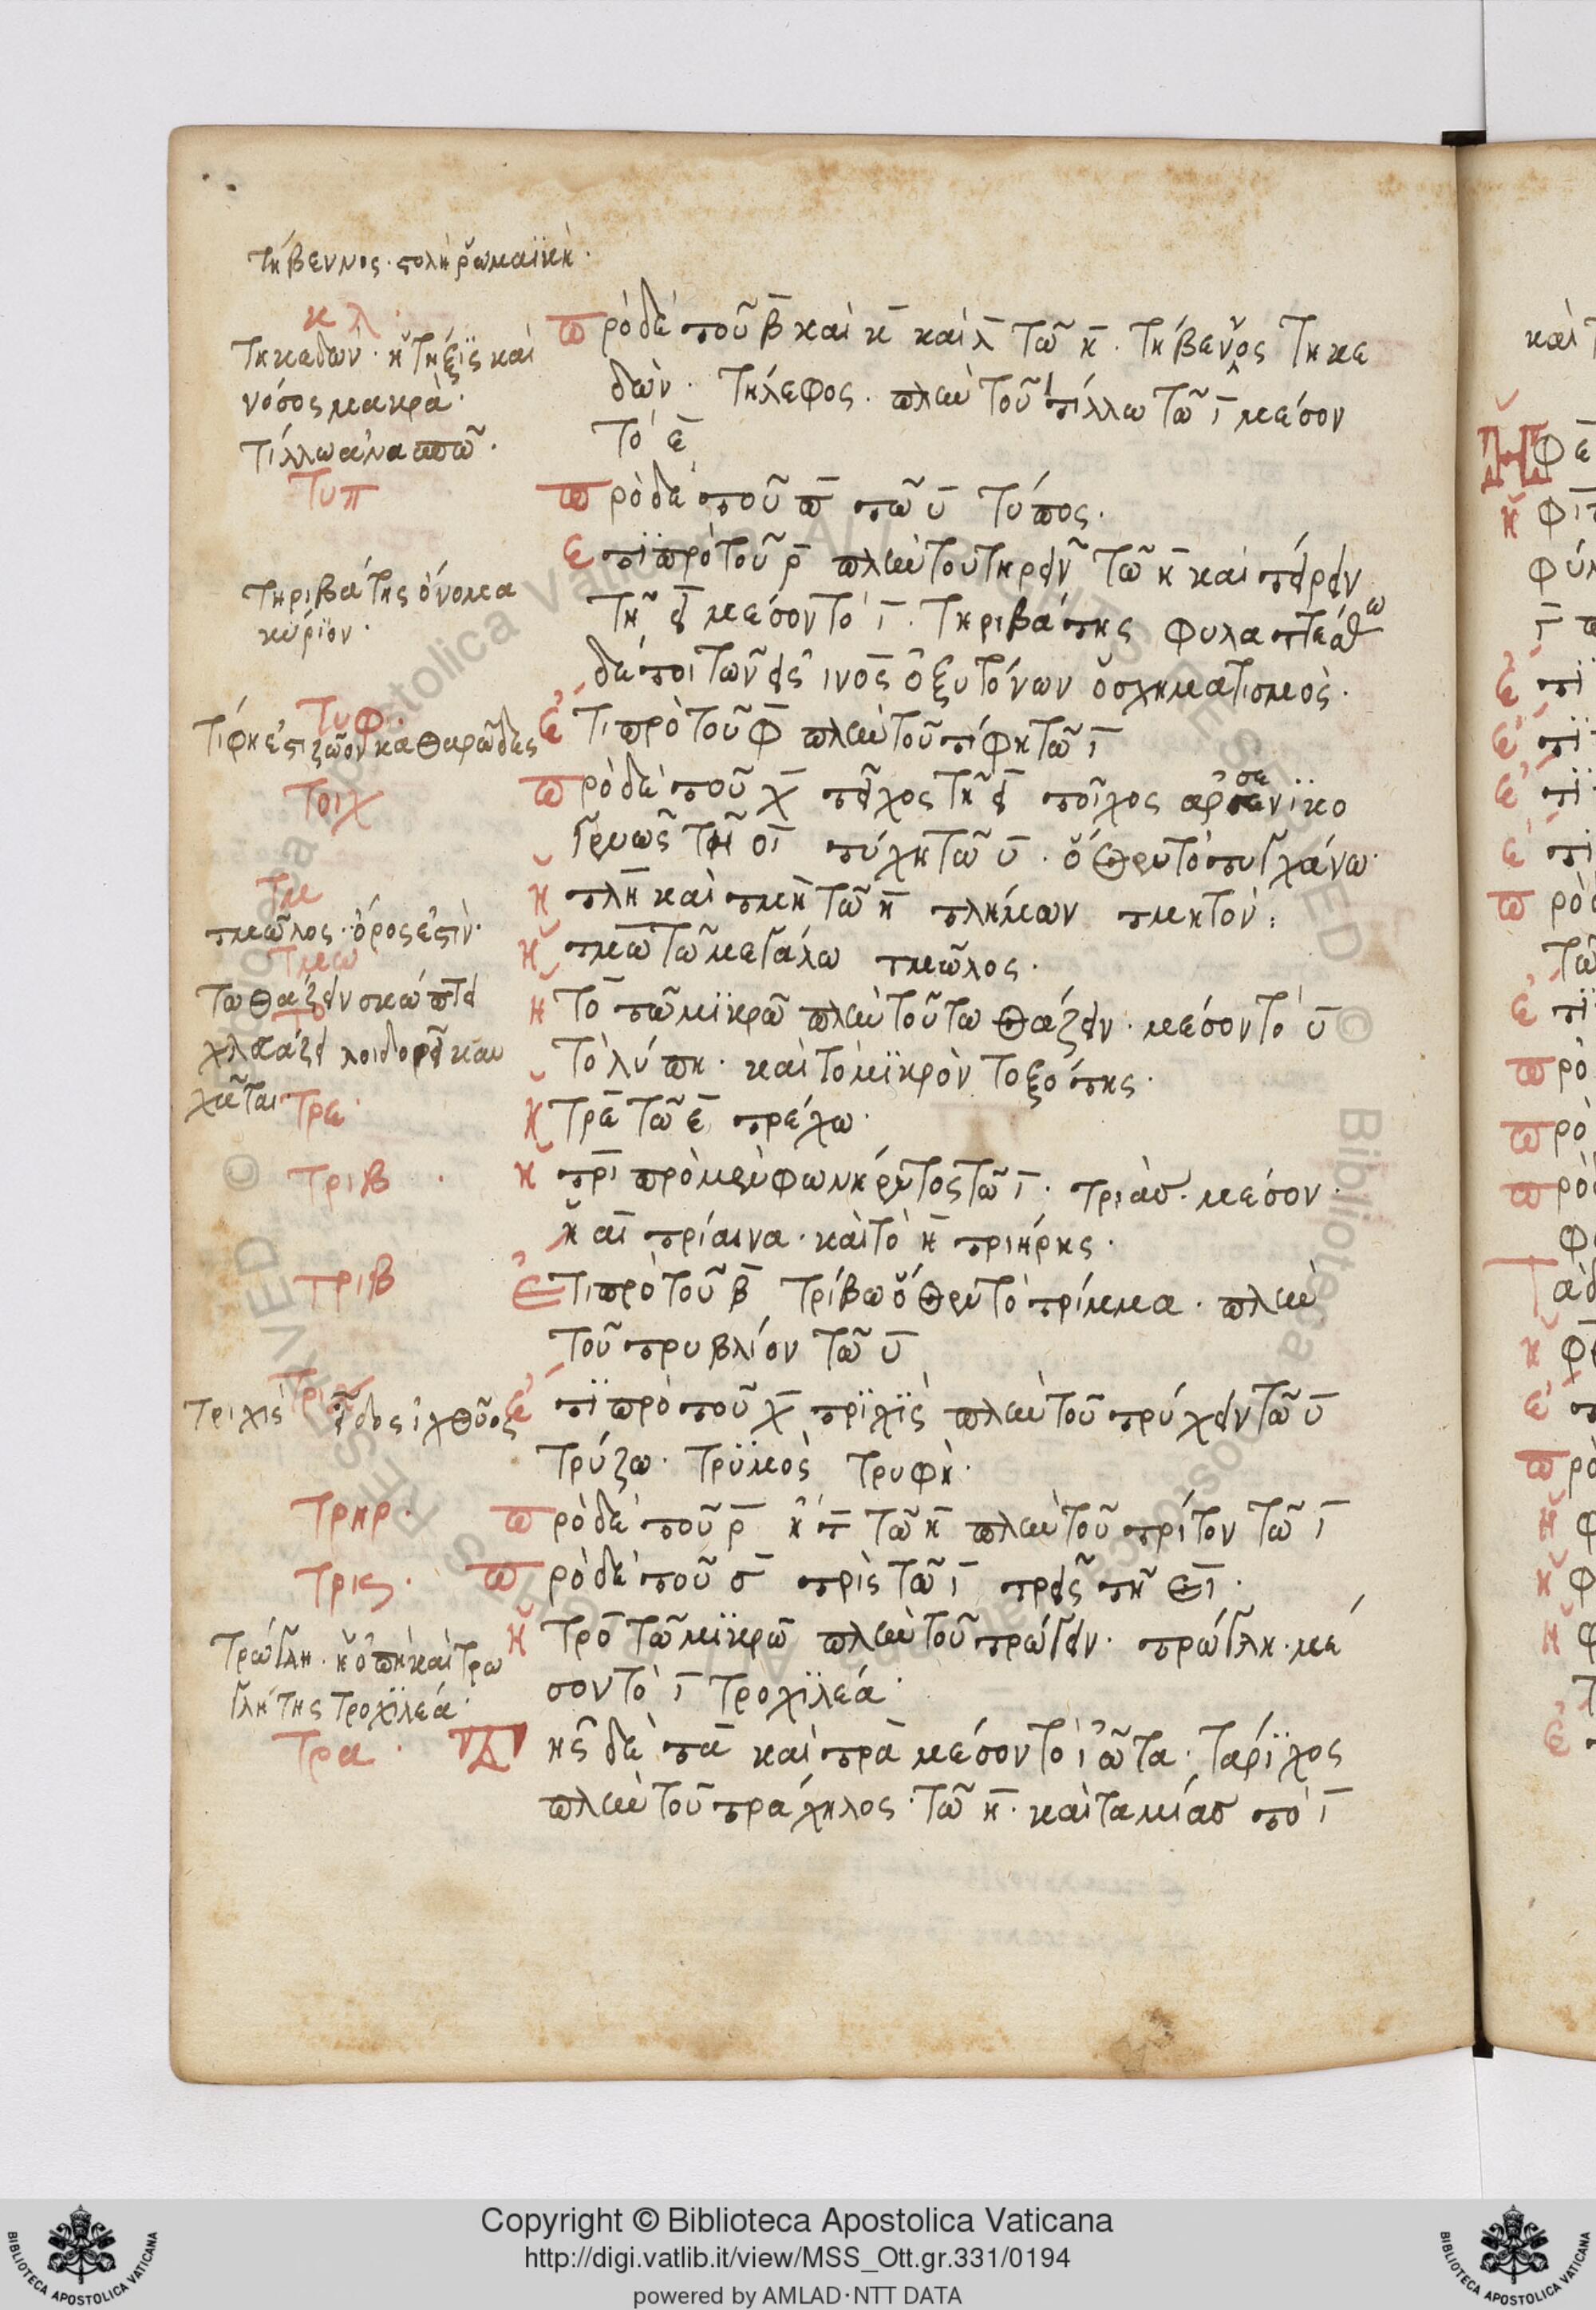 τήβεννος· στολὴ ῥωμαϊκὴ·
κ λ·
τηκεδών· ἡ τηξϊς καὶ
νόσος μακρὰ·
τίλλω ἀνασπῶ·
Τυπ
τηριβάτης ὄνομα
κύριον·
Τυφ·
τίφη ἐστι ζῶον καθαρῶδες
Τοιχ
Τμ
τμῶλος· ὄρος ἐστὶν·
Τμω
τωθάζειν σκώπτει
Το
χλευάζει λοιδορεῖ καυ
χᾶται·
Τρε·
Τριβ ·
Τριβ
Τριχ
τριχὶς εἶδος ἰχθύος
Τρηρ·
Τρις·
τρώγλη· ἡ ὀπὴ καὶ τρω
γλήτης τροχϊλεά·
Τρα ·
πρὸ δὲ τοῦ β καὶ κ καὶ λ τῶ η· τήβενος τηκε
δὼν· τήλεφος· πλὴν τοῦ τίλλω τῶ ι μέσον
τὸ ε
πρὸ δὲ τοῦ π τῶ υ τύπος·
ἐπϊ πρὸ τοῦ ρ πλὴν τοῦ τηρεῖν τῶ η καὶ τείρειν
τῆ ει μέσον τὸ ι· τηριβάτης φυλαττέσθω
δέ τοι τῶν εις ινος ὀξυτόνων ὁ σχηματισμὸς·
ἔτι πρὸ τοῦ φ πλὴν τοῦ τίφη τῶ ι
πρὸ δὲ τοῦ χ τεῖχος τῆ ει τοῖχος ἀρσενϊκο
γενῶς τῆ οι τύχη τῶ υ· ὅθεν τὸ τυγχάνω·
ἡ τλη καὶ τμη τῶ η τλήμων τμητὸν:
ἡ τμω τῶ μεγάλω τμῶλος·
ἡ το τῶ μϊκρῶ πλὴν τοῦ τωθάζειν· μέσον τὸ υ
τολύπη· καὶ τὸ μϊκρὸν τοξότης·
ἡ τρε τῶ ε τρέχω·
ἡ τρι πρὸ μὲν φωνήεντος τῶ ι· τριὰς· μέσον·
ἡ αι τρίαινα· καὶ τὸ η τριήρης·
ἔτι πρὸ τοῦ β τρίβω ὅθεν τὸ τρίμμα· πλὴν
τοῦ τρυβλίον τῶ υ
ἐπϊ πρὸ τοῦ χ τρϊχϊς πλὴν τοῦ τρύχειν τῶ υ
τρύζω· τρϋμος τρυφὴ·
πρὸ δὲ τοῦ ρ ἢ τ τῶ η πλὴν τοῦ τρίτον τῶ ι
πρὸ δὲ τοῦ σ τρὶς τῶ ι τρεῖς τῆ ει·
ἡ τρο τῶ μϊκρῶ πλὴν τοῦ τρώγειν· τρώγλη· μέ
σον τὸ ι τροχϊλεά·
της δὲ τα καὶ τρα μέσον τὸ ἰῶτα· τάρϊχος
πλὴν τοῦ τράχηλος· τῶ η· καὶ ταμίας τὸ ι
Copyright © Biblioteca Apostolica Vaticana
http://digi.vatlib.it/view/MSS_Ott.gr.331/0194
powered by AMLAD·NTT DATA
BIBLIOTECA APOSTOLICA VATICANA
BIBLIOTECA APOSTOLICA VATICANA